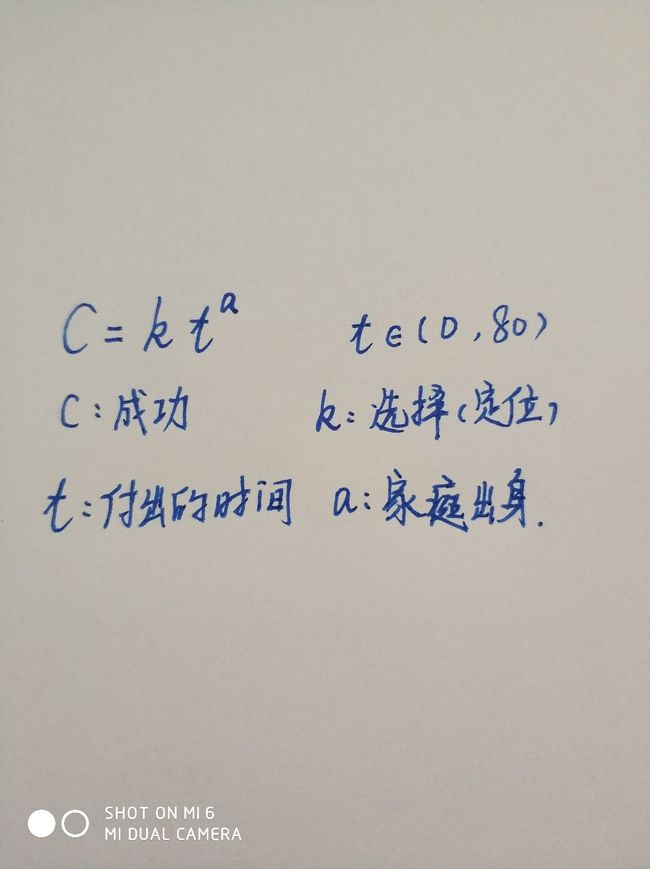 C = k t^a t∈(0,80)
C:成功 k:选择(定位)
t:付出的时间 a:家庭出身.
SHOT ON MI 6
MI DUAL CAMERA